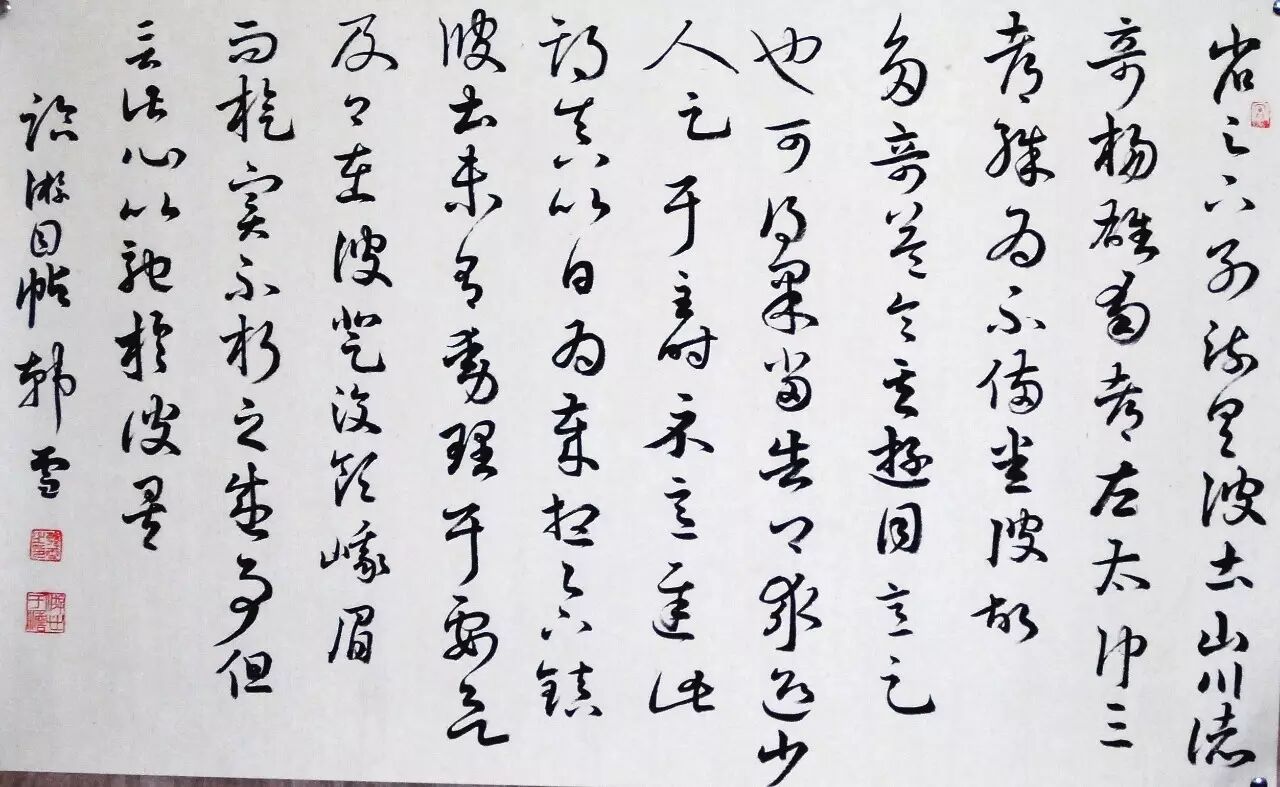 省足下别疏具彼土山川諸
奇楊雄蜀都左太冲三
都殊為不備悉彼故
多奇益令其遊目意足
也可得果當告卿求迎少
人足耳至時示意遲此
期真以日為歲想足下鎮
彼土未有動理耳要欲
及卿在彼登汶領峨眉
而旋實不朽之盛事但
言此心以馳於彼矣
臨游目帖 韩雪